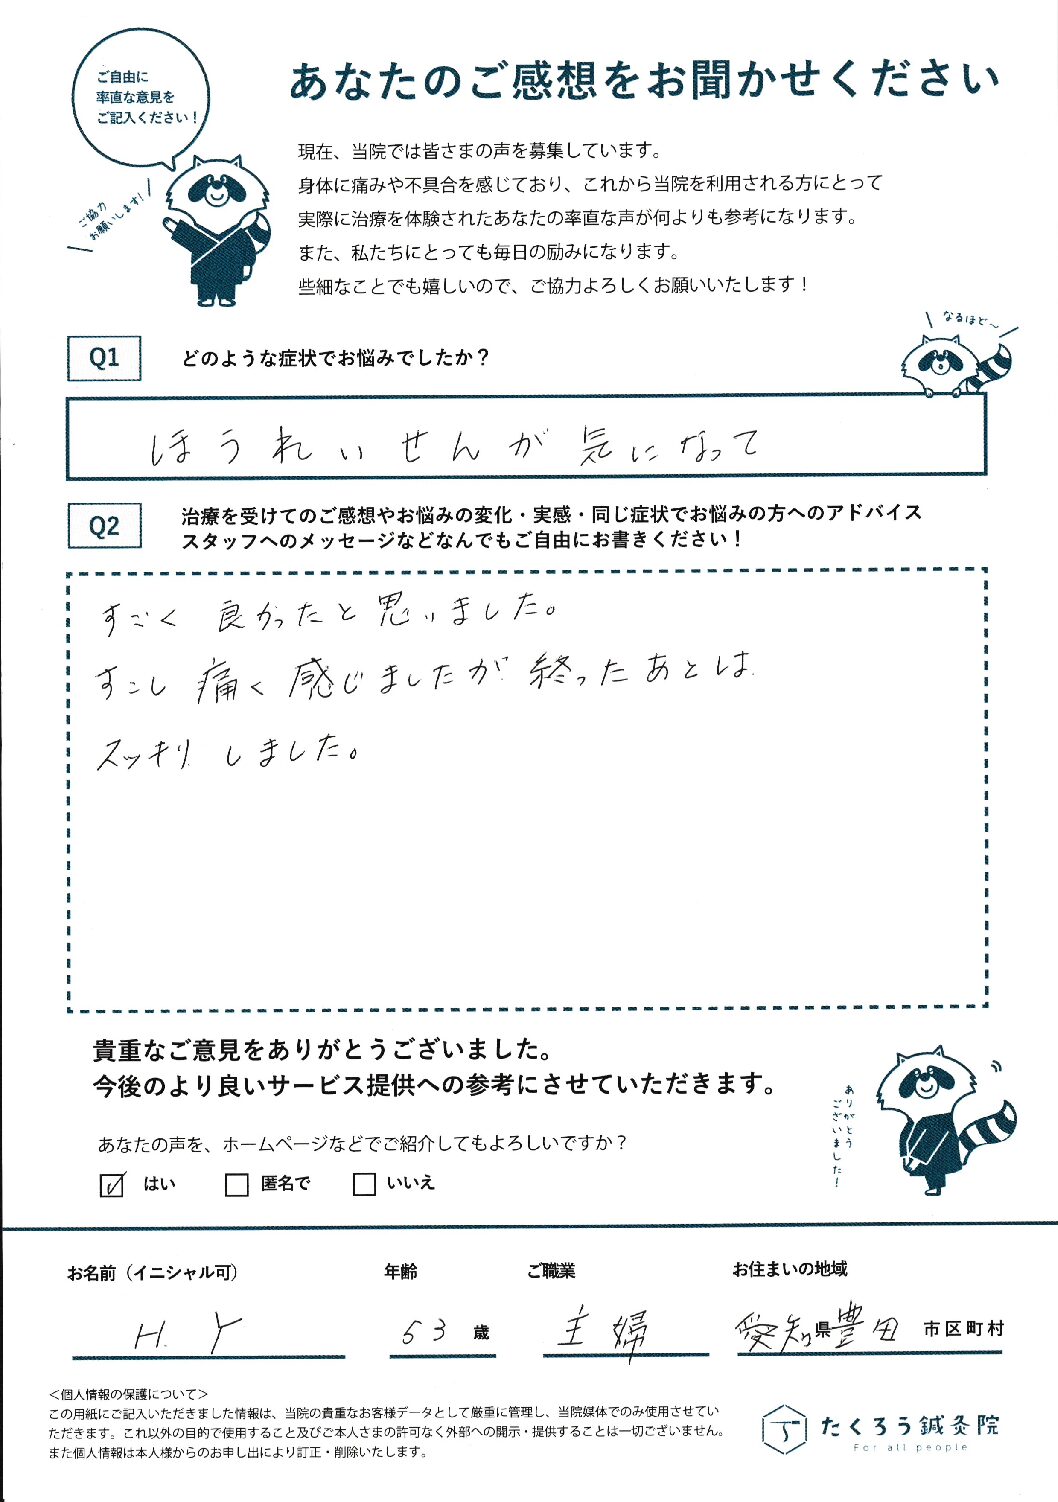 ご自由に
率直な意見を
ご記入ください！
ご協力
お願いします！
あなたのご感想をお聞かせください
現在、当院では皆さまの声を募集しています。
身体に痛みや不具合を感じており、これから当院を利用される方にとって
実際に治療を体験されたあなたの率直な声が何よりも参考になります。
また、私たちにとっても毎日の励みになります。
些細なことでも嬉しいので、ご協力よろしくお願いいたします！
なるほど〜
Q1 どのような症状でお悩みでしたか？
ほうれいせんが気になって
Q2 治療を受けてのご感想やお悩みの変化・実感・同じ症状でお悩みの方へのアドバイス
スタッフへのメッセージなどなんでもご自由にお書きください！
すごく良かったと思いました。
すこし痛く感じましたが終ったあとは
スッキリしました。
貴重なご意見をありがとうございました。
今後のより良いサービス提供への参考にさせていただきます。
ありがとう
ございました！
あなたの声を、ホームページなどでご紹介してもよろしいですか？
☑ はい □ 匿名で □ いいえ
お名前（イニシャル可） 年齢 ご職業 お住まいの地域
H.Y 53 歳 主婦 愛知県豊田 市区町村
＜個人情報の保護について＞
この用紙にご記入いただきました情報は、当院の貴重なお客様データとして厳重に管理し、当院媒体でのみ使用させてい
ただきます。これ以外の目的で使用すること及びご本人さまの許可なく外部への開示・提供することは一切ございません。
また個人情報は本人様からのお申し出により訂正・削除いたします。
たくろう鍼灸院
For all people